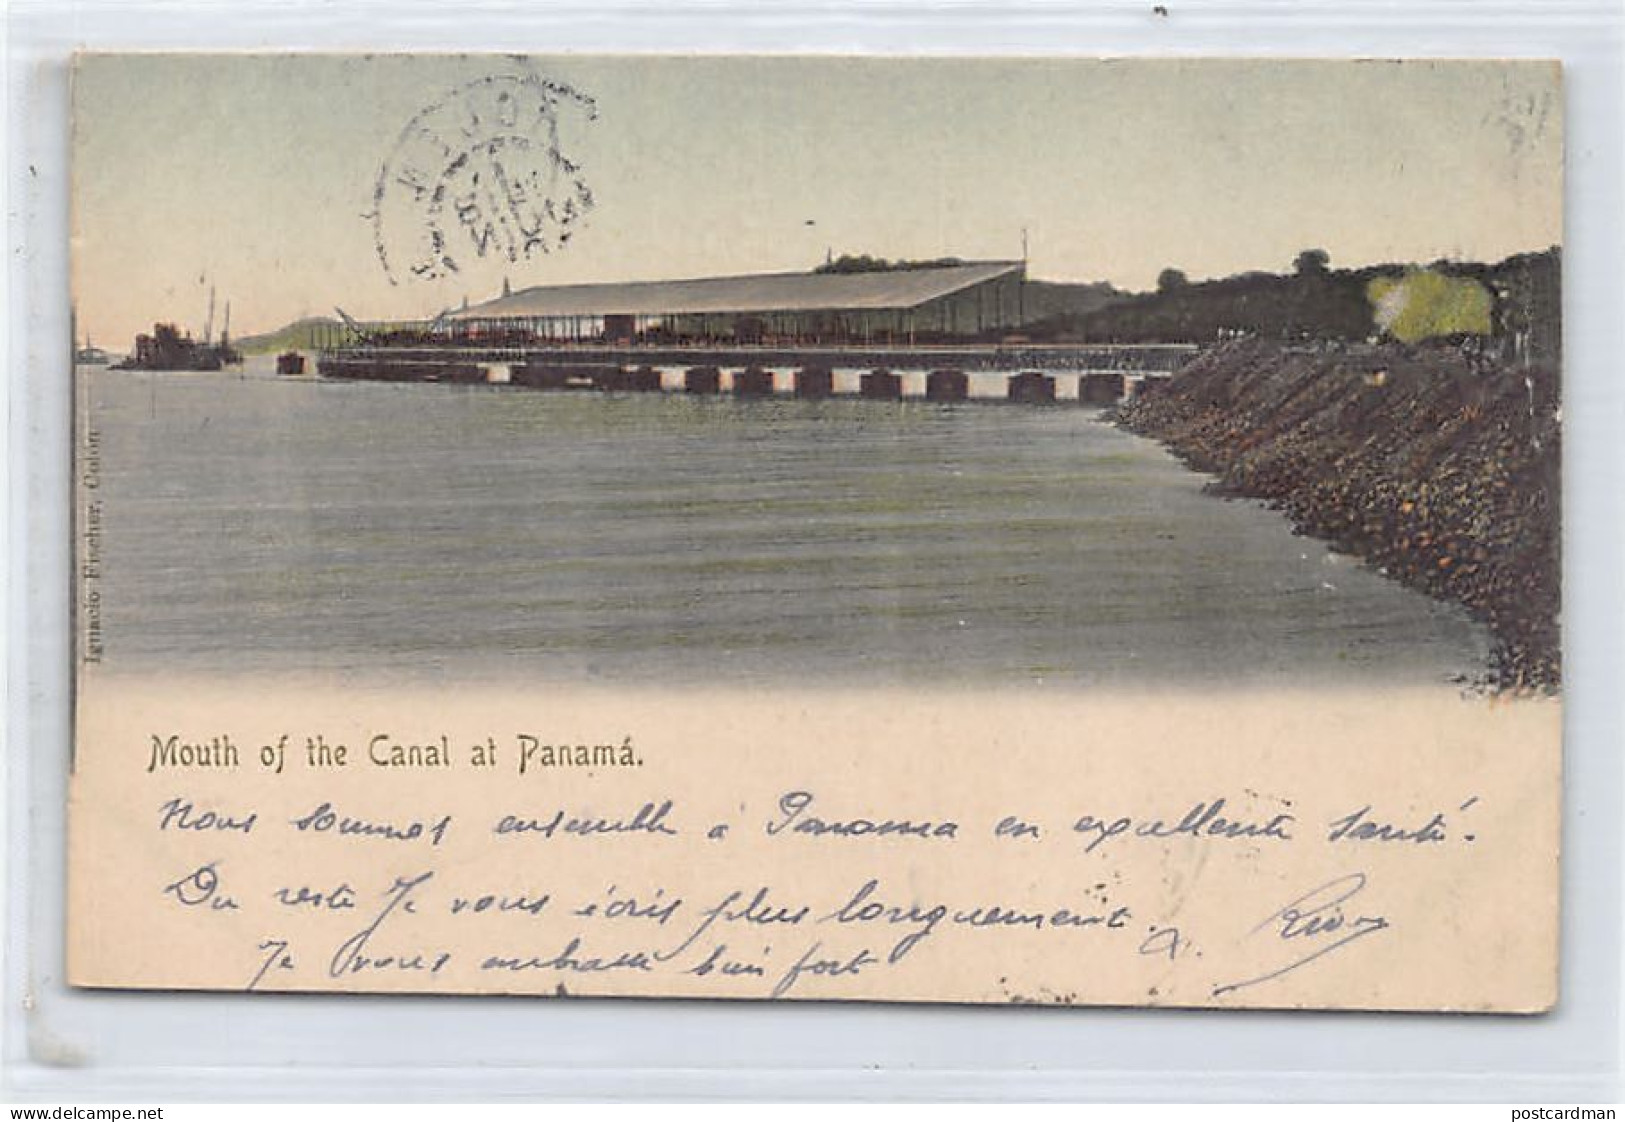 Ignacio Fischer, Colon
Mouth of the Canal at Panamá.
Nous sommes ensemble à Panama en excellente santé.
Du reste Je vous écris plus longuement.
Je vous embrasse bien fort
www.delcampe.net
postcardman